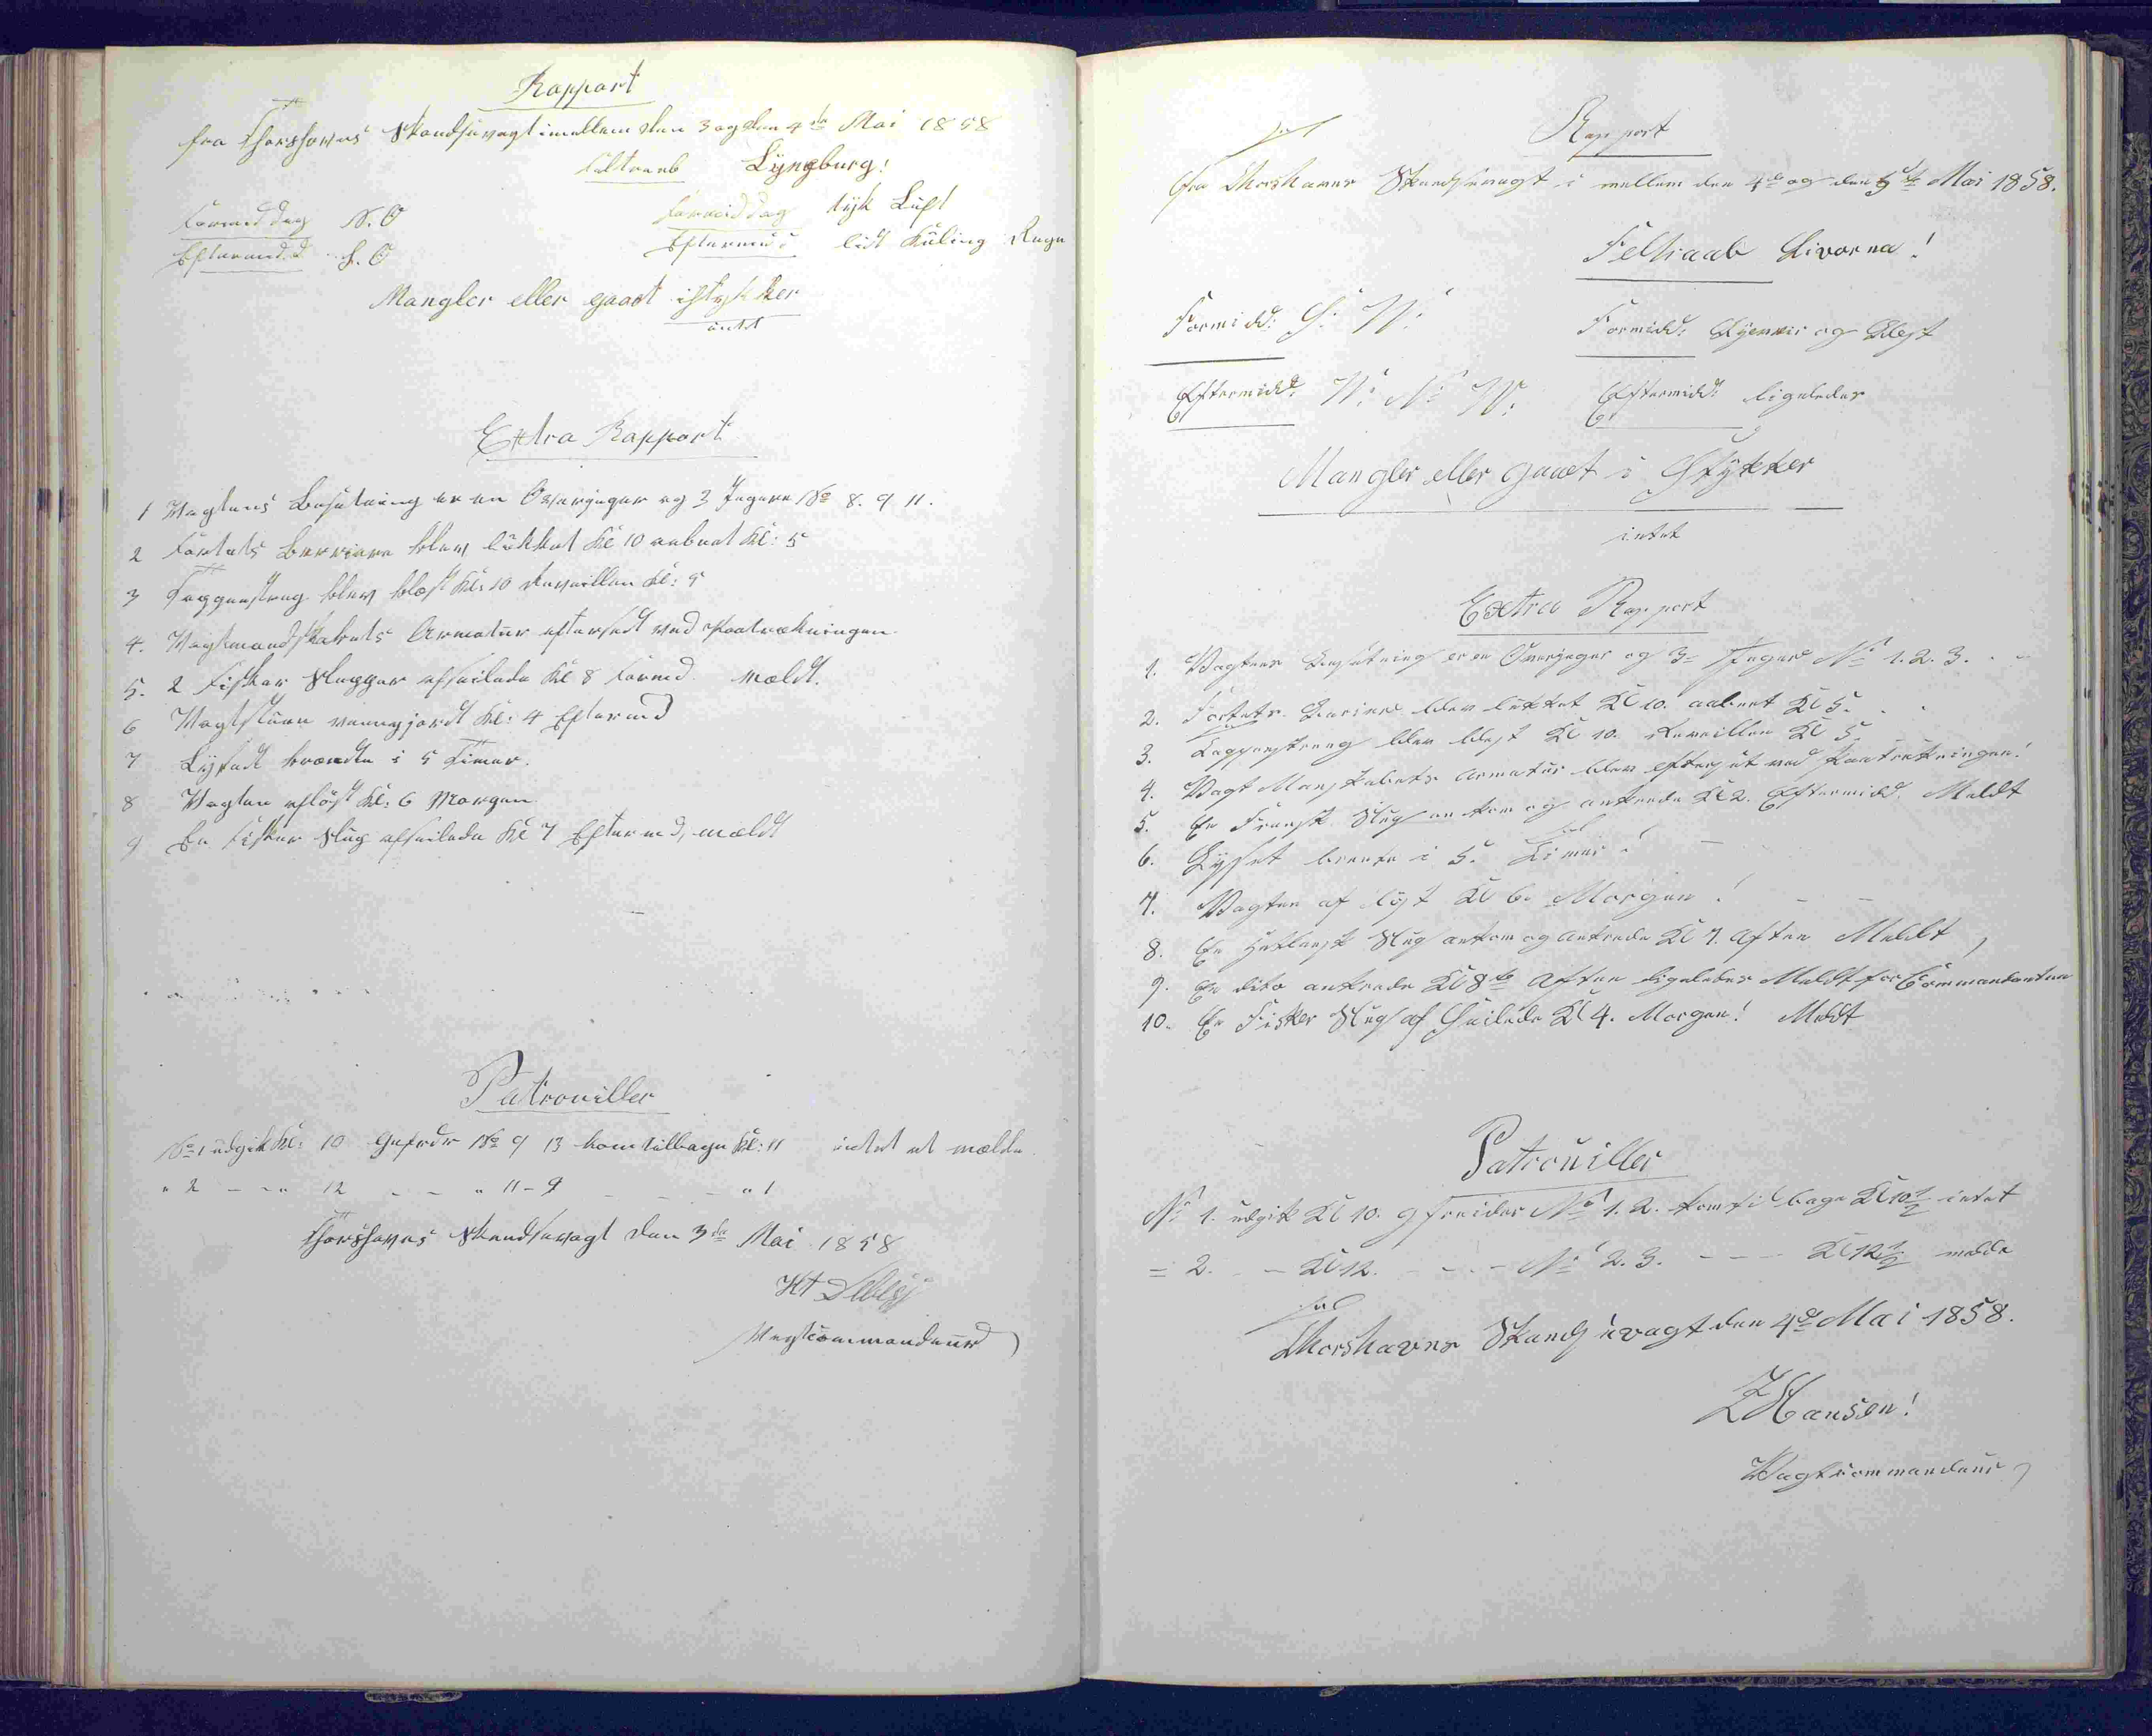 Rapport
fra Thorshavns Skandsevagt imellem den 3 og den 4de Mai 1858
Feltraab Lyneburg!
Formiddag N. O Formiddag tyk Luft
Eftermidd S. O Eftermidd lidt Kuling Regn
Mangler eller gaaet istykker
intet
Extra Rapport
1 Vagtens Besætning er en Overjæger og 3 Jægere No 8. 9 11.
2 Fortets Barriere blev lukket Kl 10 aabnet Kl: 5
3 Tappenstreg blev blæst Kl: 10 Reveillen Kl: 5
4. Vagtmandskabets Armatur eftersedt ved Paatrækningen
5. 2 Fisker Slupper afseilede Kl 8 Formd. mældt.
6 Vagtstuen reengjordt Kl: 4 Eftermd
7 Lyset brændte i 5 Timer.
8 Vagten afløst Kl: 6 Morgen
9 En Fisker Slup afseilede Kl 7 Eftermd, mældt
Patrouiller
No 1 udgik Kl: 10 Gefrdr No 9 13 kom tilbage Kl: 11 intet at mælde
" 2 - - " 12 - - " 11 - 9 - - - " 1
Thorshavns Skandsevagt den 3de Mai 1858
Vagtcommandeur
Rapport
fra Thorshavns Skandsevagt i mellem den 4de og den 5te Mai 1858.
Feltraab Livorna!
Formidd: S: W: Formidd: Byenveir og Blæst
Eftermidd: W: N: W: Eftermidd: ligeledes
Mangler eller gaaet i Stykker
intet
Extra Rapport
1. Vagtens Besætning er en Overjæger og 3 Jæger No 1. 2. 3.
2. Fortets Bariere blev lukket Kl 10. aabnet Kl 5.
3. Tappenstreng blev blæst Kl 10. Reveillen Kl 5
4. Vagt Manskabets Armatur blev efterset ved Paatrækningen!
5. En Fransk Slup an kom og ankrede Kl 2. Eftermidd. Meldt
6. Lysset brente i 5. Timer!
7. Vagten af løst Kl 6. Morgen!
8. En Hetlansk Slup ankom og ankrede Kl 7. Aften Meldt
9. En dito ankrede Kl 8te Aften ligeledes Meldt for Commandanten
10. En Fisker Slup af Seilede Kl 4. Morgen! Meldt
Patrouiller
No 1. udgik Kl 10. gfreider No 1. 2. kom til bage Kl 10½ intet
= 2. - - Kl 12. - - - No 2. 3. - - - Kl 12½ melde
Thorshavns Skandsevagt den 4de Mai 1858.
Z Hansen!
Vagtcommandeur